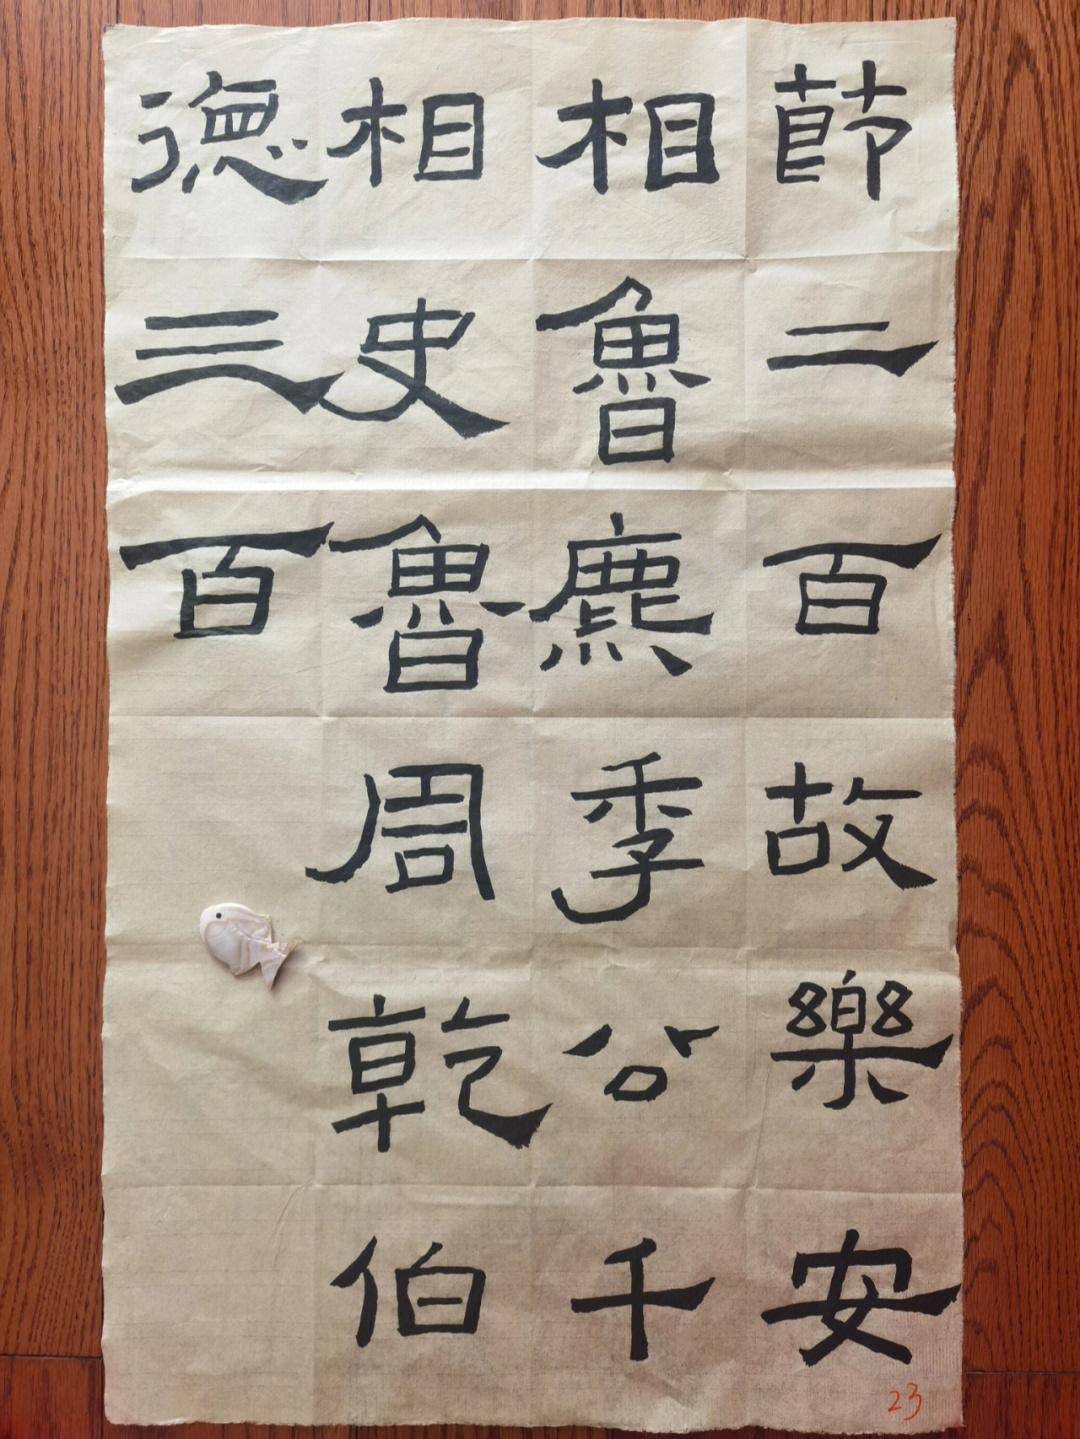 節二百故樂安
相魯麃季公千
相史魯周乾伯
德三百
23